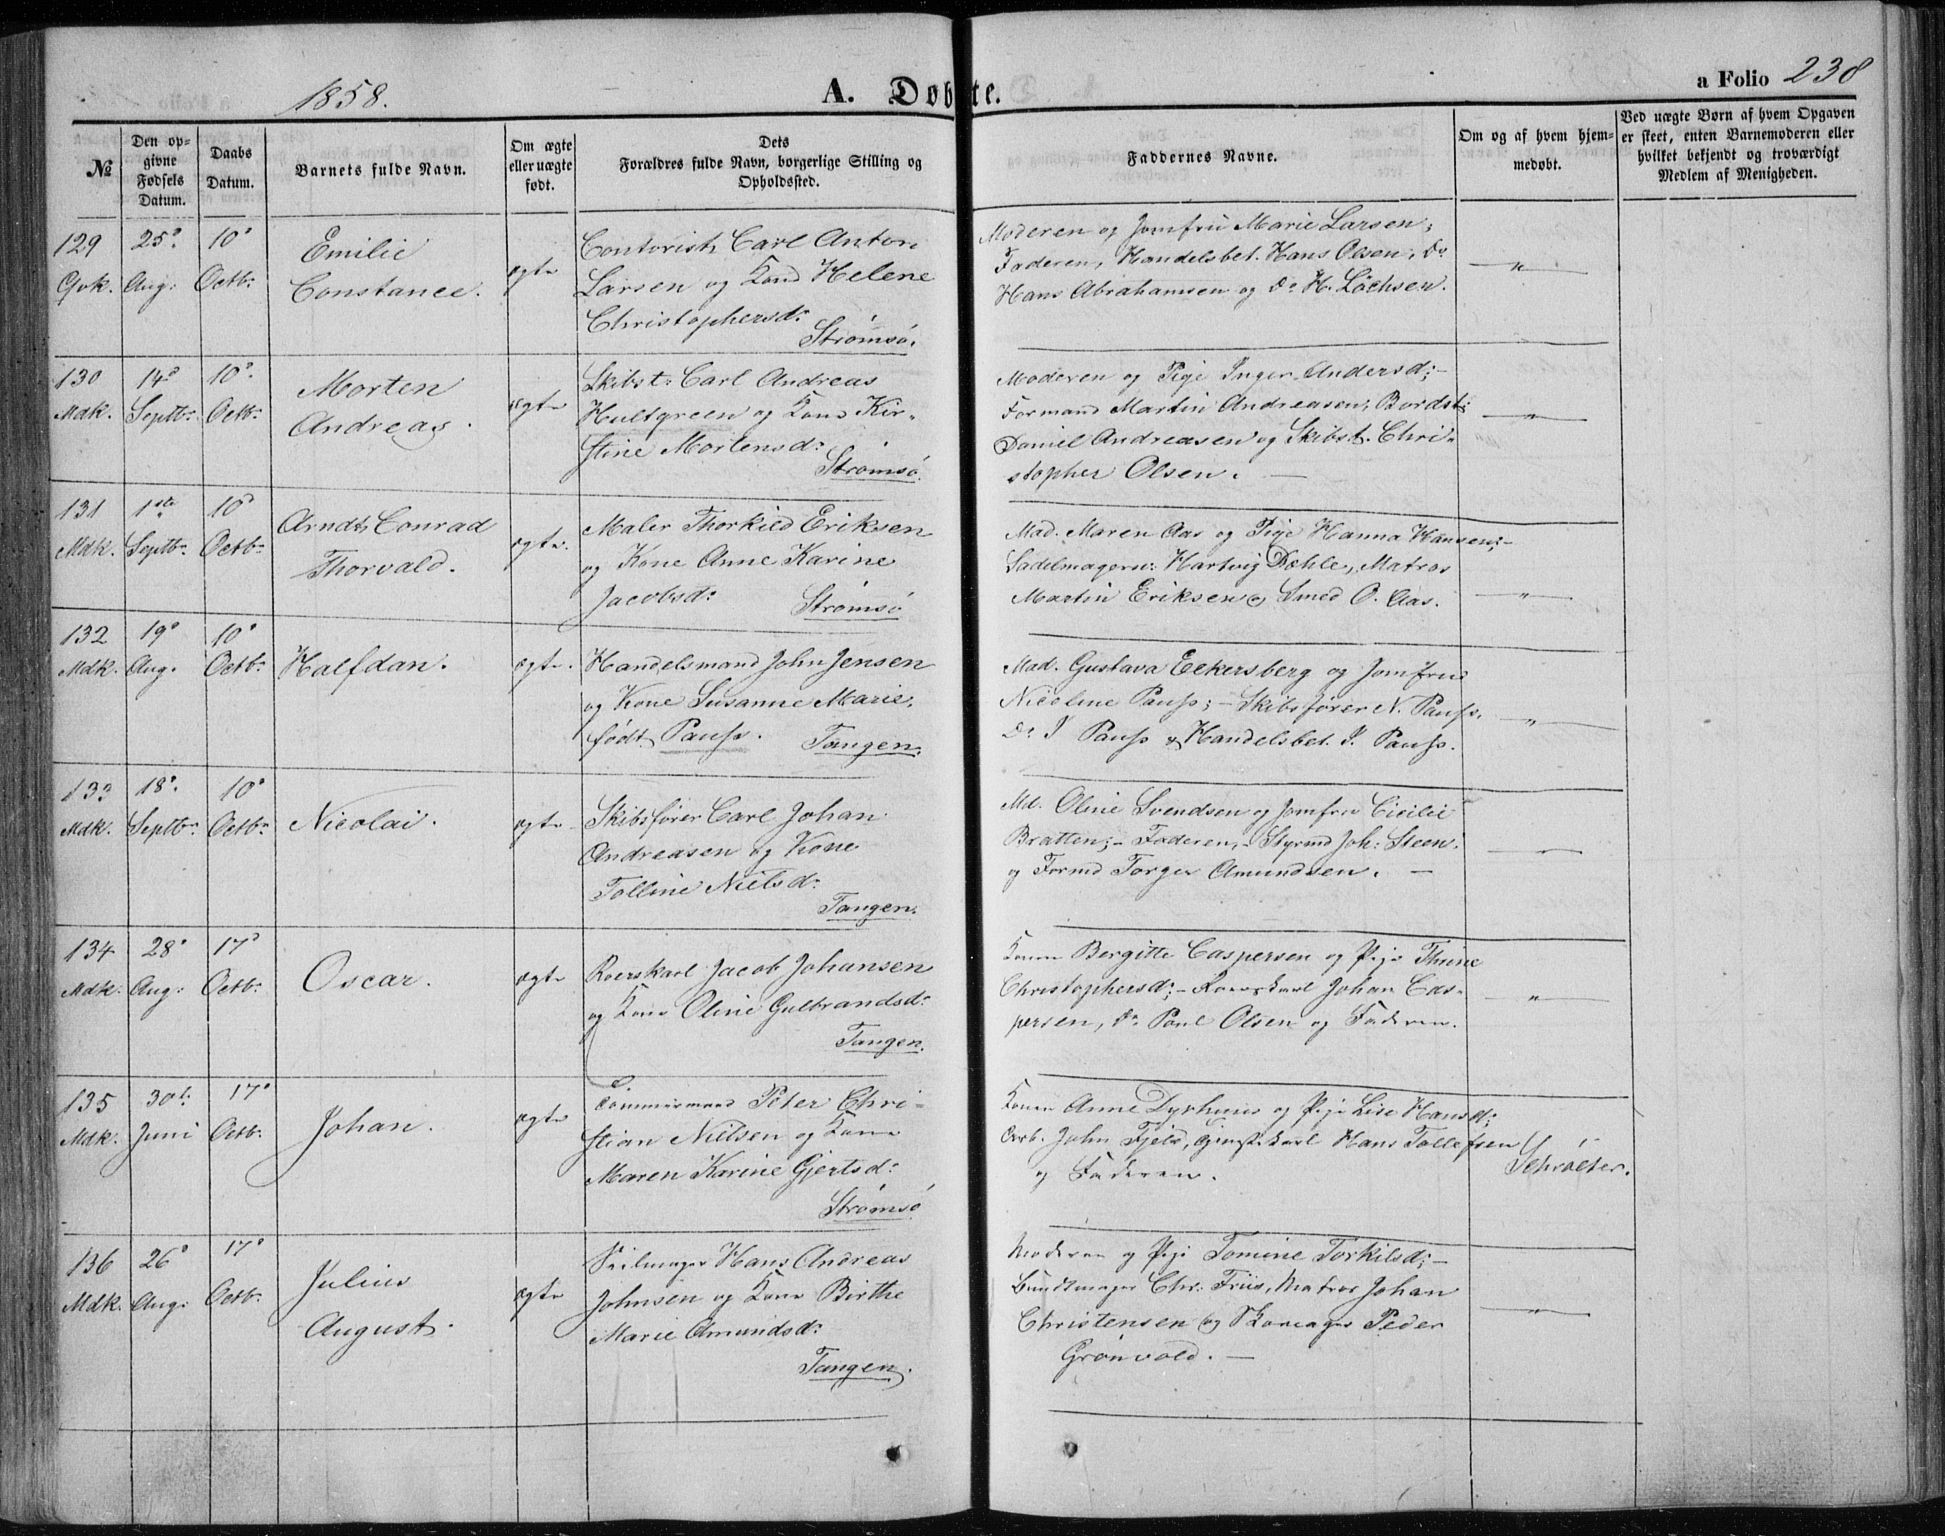 1858.
A. Døbte.
a Folio 238
№
Den opgivne Fødsels Datum.
Daabs Datum.
Barnets fulde Navn.
Om ægte eller uægte født.
Dets Forældres fulde Navn, borgerlige Stilling og Opholdssted.
Faddernes Navne.
Om og af hvem hjemmedøbt.
Ved uægte Børn af hvem Opgaven er skeet, enten Barnemoderen eller hvilket bekjendt og troværdigt Medlem af Menigheden.
129 25d. 10d Emilie
Qvk. Aug: Octbr. Constance. ægte
Contorist Carl Anton
Larsen og Kone Helene
Christophersd:
Strømsø.
Moderen og Jomfru Marie Larsen;
Faderen, Handelsbet. Hans Olsen, Do
Hans Abrahamsen og Do H. Lôchsen. "
130 14d 10d. Morten
Mdk. Septbr. Octbr. Andreas. ægte
Skibst: Carl Andreas
Hultgreen og Kone Kir-
stine Mortensd:
Strømsø.
Moderen og Pige Inger Andersd;-
Formand Martin Andreasen; Bordst:
Daniel Andreasen og Skibst. Chri-
stopher Olsen. "
131 1ste 10d Arndt Conrad
Mdk. Septbr. Octbr. Thorvald. ægte.
Maler Thorkild Eriksen
og Kone Anne Karine
Jacobsd: Strømsø
Mad. Maren Aas og Pige Hanna Hansen;-
Sadelmagersv: Hartvig Dæhle, Matros
Martin Eriksen & Smed O. Aas. "
132 19d 10d
Mdk. Aug. Octbr. Halfdan. ægte.
Handelsmand John Jensen
og Kone Susanne Marie,
født Pauss. Tangen.
Mad. Gustava Eckersberg og Jomfru
Nicoline Pauss; - Skibsfører N. Pauss.
Do I Pauss & Handelsbet. I. Pauss. "
133 18d. 10d
Mdk. Septbr. Octbr. Nicolai. ægte
Skibsfører Carl Johan
Andreasen og Kone
Tolline Nielsd:
Tangen.
Md. Oline Svendsen og Jomfru Cicilie
Bratten; - Faderen, - Styrmd Joh: Steen
og Formd Torger Amundsen. - "
134 28d 17d
Mdk. Aug: Octbr. Oscar. ægte
Roerskarl Jacob Johansen
og Kone Oline Gulbrandsd:
Tangen.
Konen Bergitte Caspersen og Pige Thrine
Christophersd; - Roerskarl Johan Cas-
persen, Do Paul Olsen og Faderen. "
135 30te 17d
Mdk. Juni Octbr. Johan. ægte
Tømmermand Peter Chri-
stian Nielsen og Kone
Maren Karine Gjertsd:
Strømsø
Konen Anne Dyrhuus og Pige Lise Hansd;
Arb. John Fjeld, Hans Tollefsen
og Faderen. Schrøeter.
136 26d 17d Julius
Mdk. Aug: Octbr. August. ægte
Seilmager Hans Andreas
Johnsen og Kone Birthe
Marie Amundsd:
Tangen.
Moderen og Pige Tomine Torkilsd;-
Buntmager Chr: Friis, Matros Johan
Christensen og Skomager Peder
Grønvold. - "